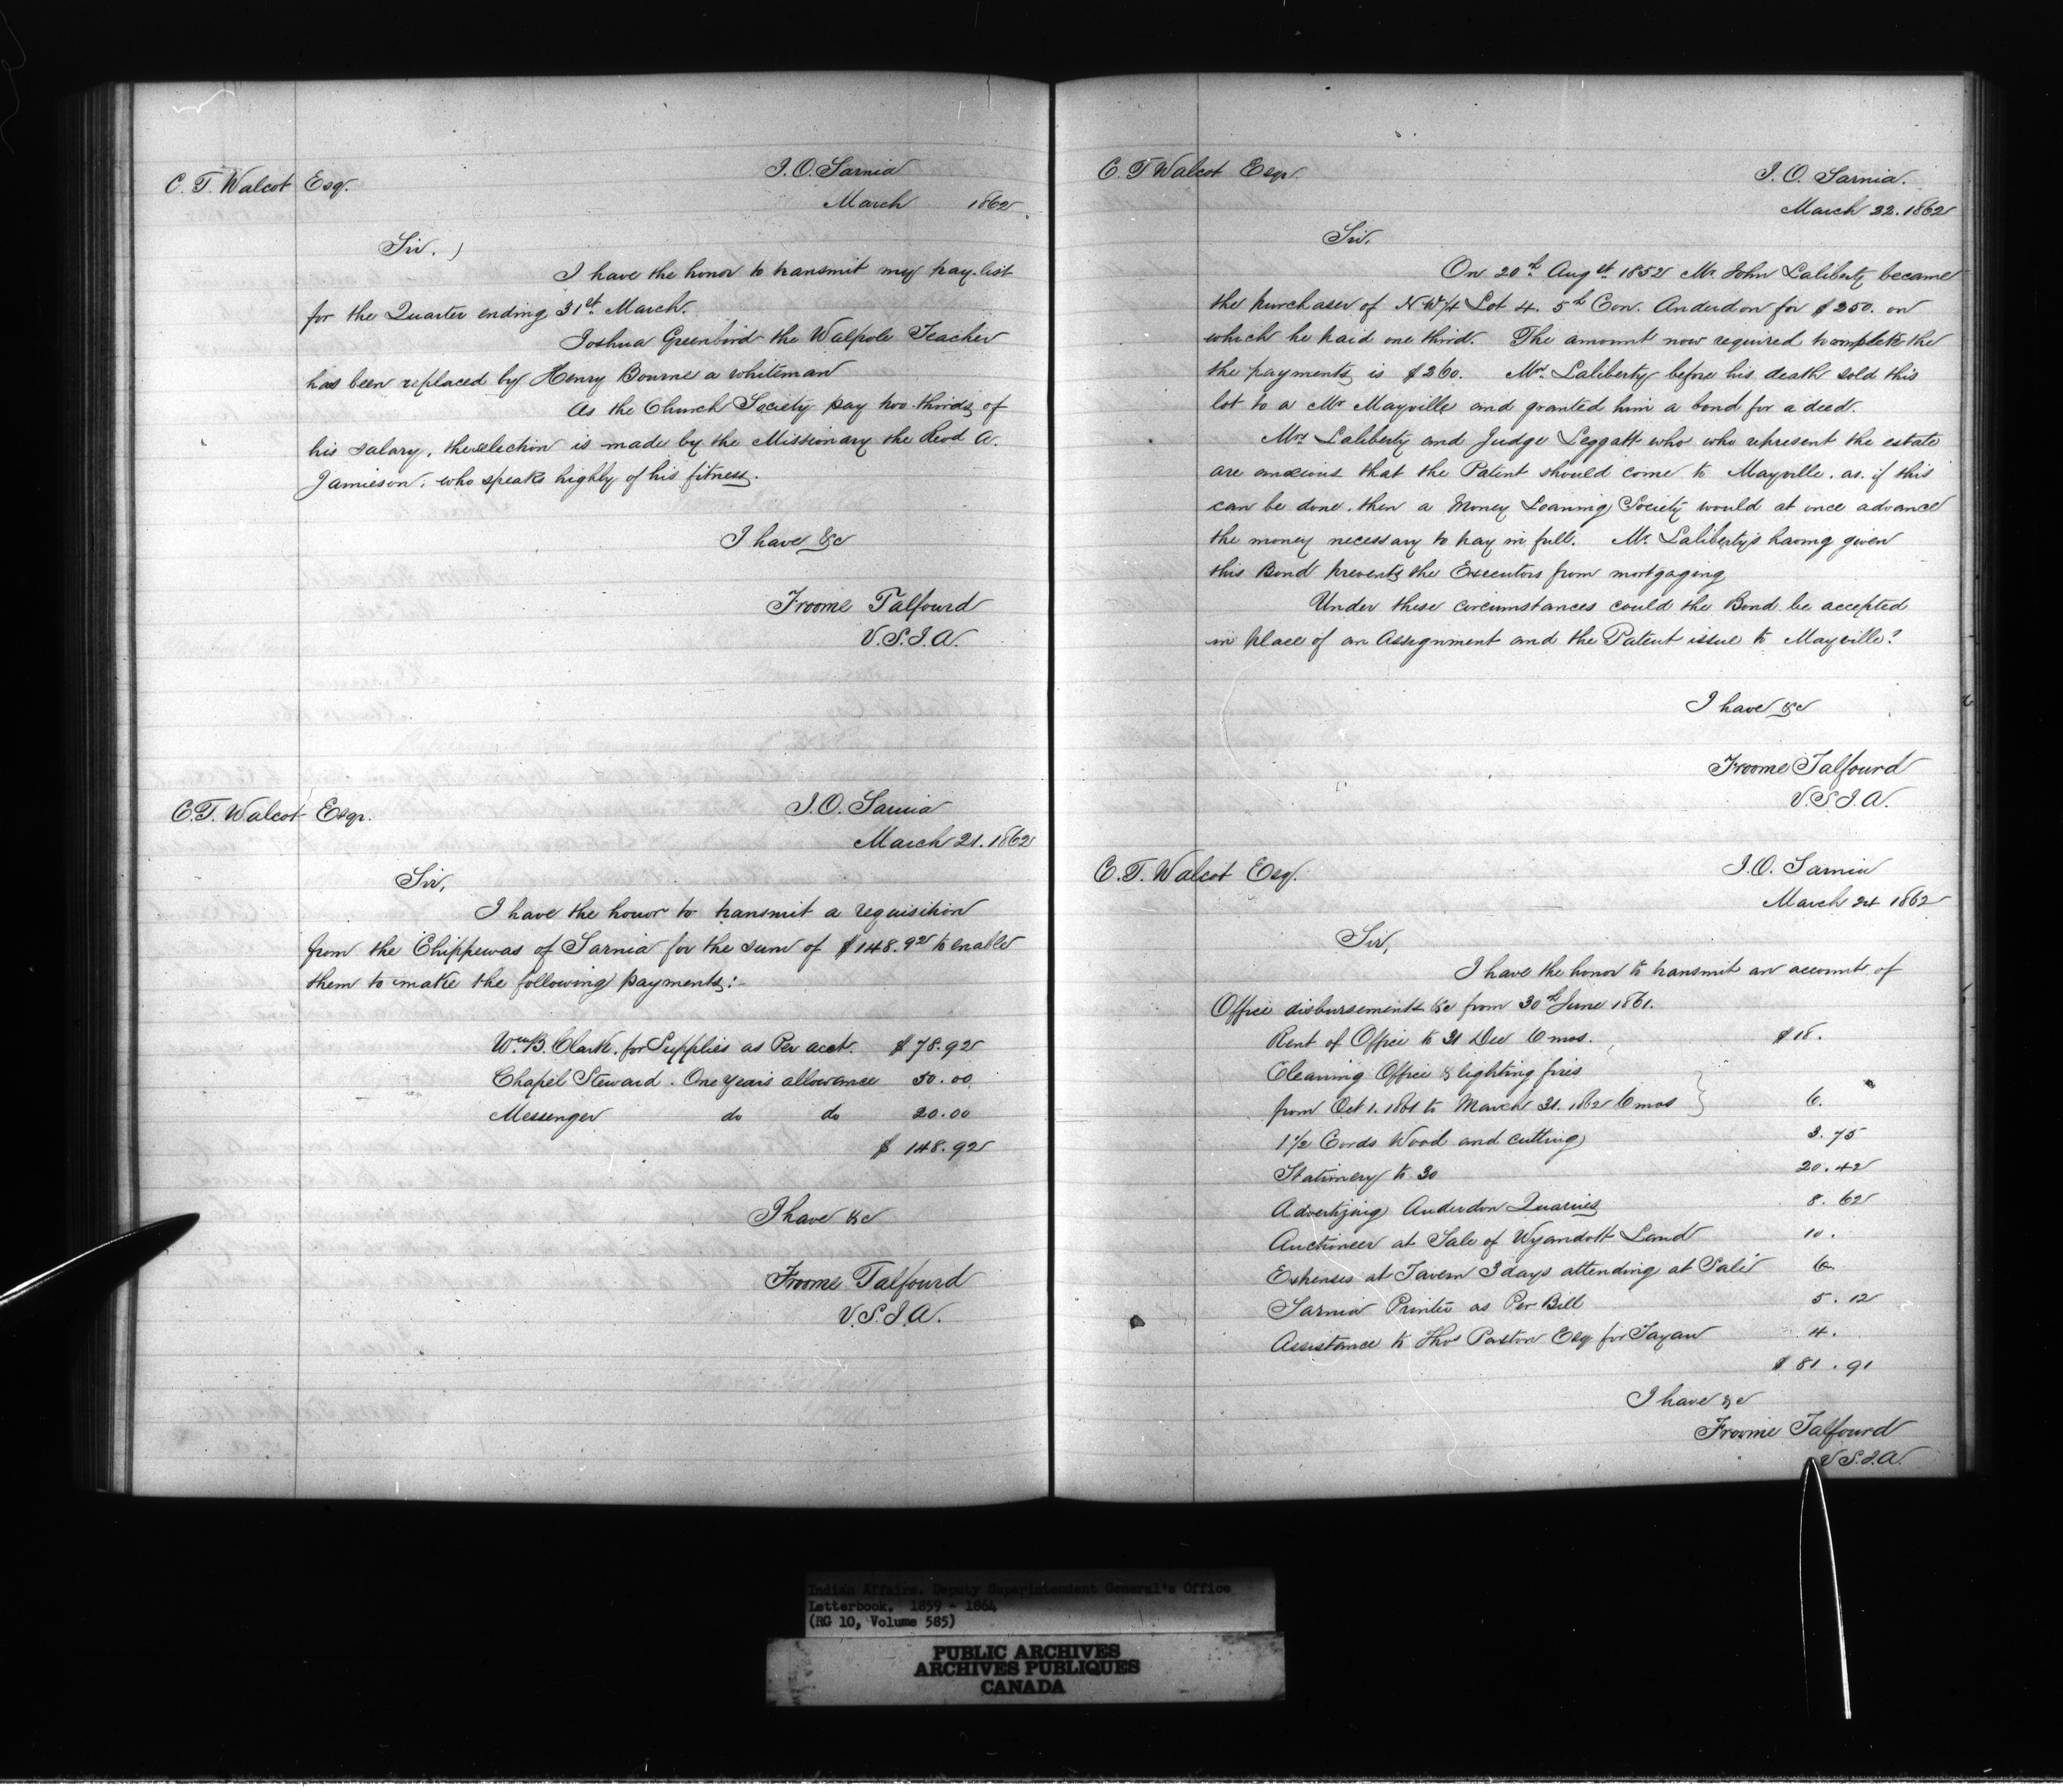 C. T. Walcot Esq.
I. O. Sarnia
March 1862
Sir.
I have the honor to transmit my pay-list
for the Quarter ending 31st March.
Joshua Greenbird the Walpole Teacher
has been replaced by Henry Bourne a whiteman
As the Church Society pay two-thirds of
his salary, the selection is made by the Missionary the Revd A.
Jamieson, who speaks highly of his fitness.
I have &c
Froome Talfourd
V.S.I.A.
C. T. Walcot Esqr.
I. O. Sarnia
March 21. 1862
Sir,
I have the honor to transmit a requisition
from the Chippewas of Sarnia for the sum of $148.92 to enable
them to make the following payments:-
Wm B. Clark. for Supplies as Per acct. $78.92
Chapel Steward. One years allowance 50.00
Messenger do do 20.00
$ 148.92
I have &c
Froome Talfourd
V.S.I.A.
C. T Walcot Esqr.
I. O. Sarnia.
March 22. 1862
Sir,
On 20th Augst 1852 Mr. John Laliberty became
the purchaser of N W/4 Lot 4. 5th Con. Anderdon for $250. on
which he paid one third. The amount now required to complete the
the payments is $260. Mr. Laliberty before his death sold this
lot to a Mr Mayville and granted him a bond for a deed.
Mrs Laliberty and Judge Leggatt who who represent the estate
are anxious that the Patent should come to Mayville. as. if this
can be done, then a Money Loaning Society would at once advance
the money necessary to pay in full. Mr. Laliberty's having given
this Bond prevents the Executors from mortgaging
Under these circumstances could the Bond be accepted
in place of an Assignment and the Patent issue to Mayville?
I have &c
Froome Talfourd
V.S.I.A.
C. T. Walcot Esq.
I. O. Sarnia
March 24 1862
Sir,
I have the honor to transmit an account of
Office disbursements &c from 30th June 1861.
Rent of Office to 31 Dec 6 mos. $18.
Cleaning Office & lighting fires
from Oct 1. 1861 to March 31. 1862 6 mos 6.
1 1/2 Cords Wood and cutting 3.75
Stationery to 30 20.42
Advertizing Anderdon Quarries 8.62
Auctioneer at Sale of Wyandott Land 10.
Expenses at Tavern 3 days attending at Sale 6
Sarnia Printer as Per Bill 5.12
Assistance to Thos Paxton Esq for 4.
$ 81.91
I have &c
Froome Talfourd
V.S.I.A.
Indian Affairs. Deputy Superintendent General's Office
Letterbook. 1859 - 1864
(RG 10, Volume 585)
PUBLIC ARCHIVES
ARCHIVES PUBLIQUES
CANADA